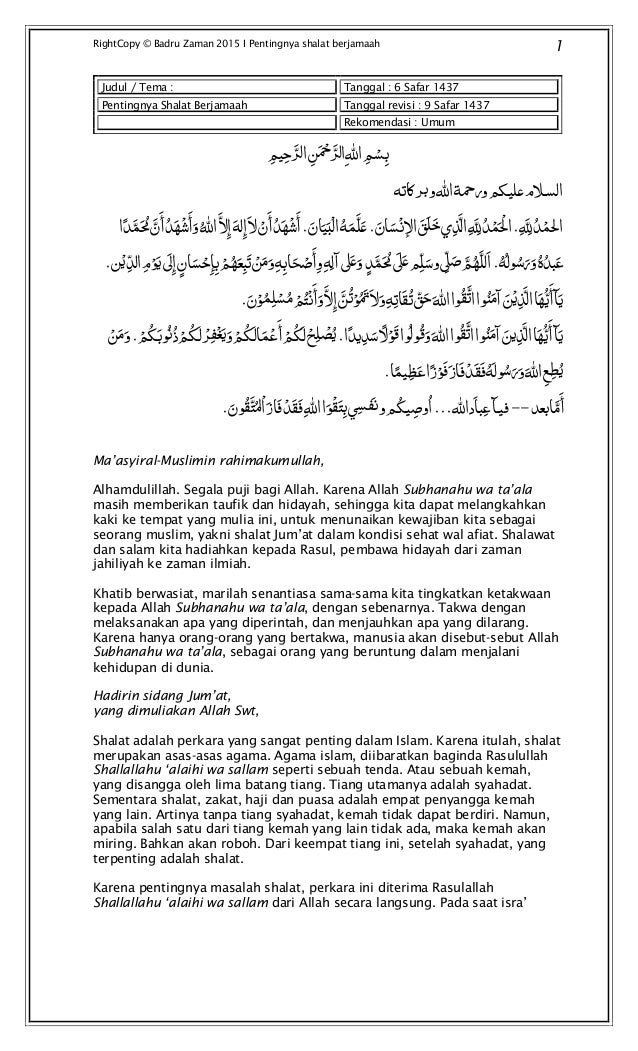 RightCopy © Badru Zaman 2015 I Pentingnya shalat berjamaah 1
Judul / Tema : Tanggal : 6 Safar 1437
Pentingnya Shalat Berjamaah Tanggal revisi : 9 Safar 1437
Rekomendasi : Umum
بِسْمِ اللهِ الرَّحْمَنِ الرَّحِيمِ
السلام عليكم ورحمة الله وبركاته
الحمْدُ لِلَّهِ. الْحَمْدُ لِلَّهِ الَّذِي خَلَقَ الإِنْسَانَ. عَلَّمَهُ الْبَيَانَ. أَشْهَدُ أَنْ لاَ إِلهَ إِلاَّ اللهُ وَأَشْهَدُ أَنَّ مُحَمَّدًا
عَبدُهُ وَرَسُولُهُ. اَللَّهُمَّ صَلِّ وسَلِّم عَلَى مُحَمَّدٍ وَعَلَى آلِهِ وأَصْحَابِهِ وَمَنْ تَبِعَهُمْ بِإِحْسَانٍ إِلَى يَوْمِ الدِّيْن.
يَآأَيُّهَا الَّذِيْنَ آمَنُوا اتَّقُوا اللهَ حَقَّ تُقَاتِهِ وَلاَ تَمُوْتُنَّ إِلاَّ وَأَنْتُمْ مُسْلِمُوْنَ.
يَآأَيُّهَا الَّذِينَ آمَنُوا اتَّقُوا اللهَ وَقُولُوا قَوْلاً سَدِيدًا. يُصْلِحْ لَكُمْ أَعْمَالَكُمْ وَيَغْفِرْ لَكُمْ ذُنُوبَكُمْ. وَمَنْ
يُطِعِ اللهَ وَرَسُولَهُ فَقَدْ فَازَ فَوْزًا عَظِيمًا.
أَمَّا بعد -- فيآ عِبآدَ الله... أُوصِيكُم ونَفسِي بِتَقْوَا اللهِ فَقَدْ فَازَ الْمُتَّقُونَ.
Ma’asyiral-Muslimin rahimakumullah,
Alhamdulillah. Segala puji bagi Allah. Karena Allah Subhanahu wa ta’ala
masih memberikan taufik dan hidayah, sehingga kita dapat melangkahkan
kaki ke tempat yang mulia ini, untuk menunaikan kewajiban kita sebagai
seorang muslim, yakni shalat Jum’at dalam kondisi sehat wal afiat. Shalawat
dan salam kita hadiahkan kepada Rasul, pembawa hidayah dari zaman
jahiliyah ke zaman ilmiah.
Khatib berwasiat, marilah senantiasa sama-sama kita tingkatkan ketakwaan
kepada Allah Subhanahu wa ta’ala, dengan sebenarnya. Takwa dengan
melaksanakan apa yang diperintah, dan menjauhkan apa yang dilarang.
Karena hanya orang-orang yang bertakwa, manusia akan disebut-sebut Allah
Subhanahu wa ta’ala, sebagai orang yang beruntung dalam menjalani
kehidupan di dunia.
Hadirin sidang Jum’at,
yang dimuliakan Allah Swt,
Shalat adalah perkara yang sangat penting dalam Islam. Karena itulah, shalat
merupakan asas-asas agama. Agama islam, diibaratkan baginda Rasulullah
Shallallahu ‘alaihi wa sallam seperti sebuah tenda. Atau sebuah kemah,
yang disangga oleh lima batang tiang. Tiang utamanya adalah syahadat.
Sementara shalat, zakat, haji dan puasa adalah empat penyangga kemah
yang lain. Artinya tanpa tiang syahadat, kemah tidak dapat berdiri. Namun,
apabila salah satu dari tiang kemah yang lain tidak ada, maka kemah akan
miring. Bahkan akan roboh. Dari keempat tiang ini, setelah syahadat, yang
terpenting adalah shalat.
Karena pentingnya masalah shalat, perkara ini diterima Rasulallah
Shallallahu ‘alaihi wa sallam dari Allah secara langsung. Pada saat isra’